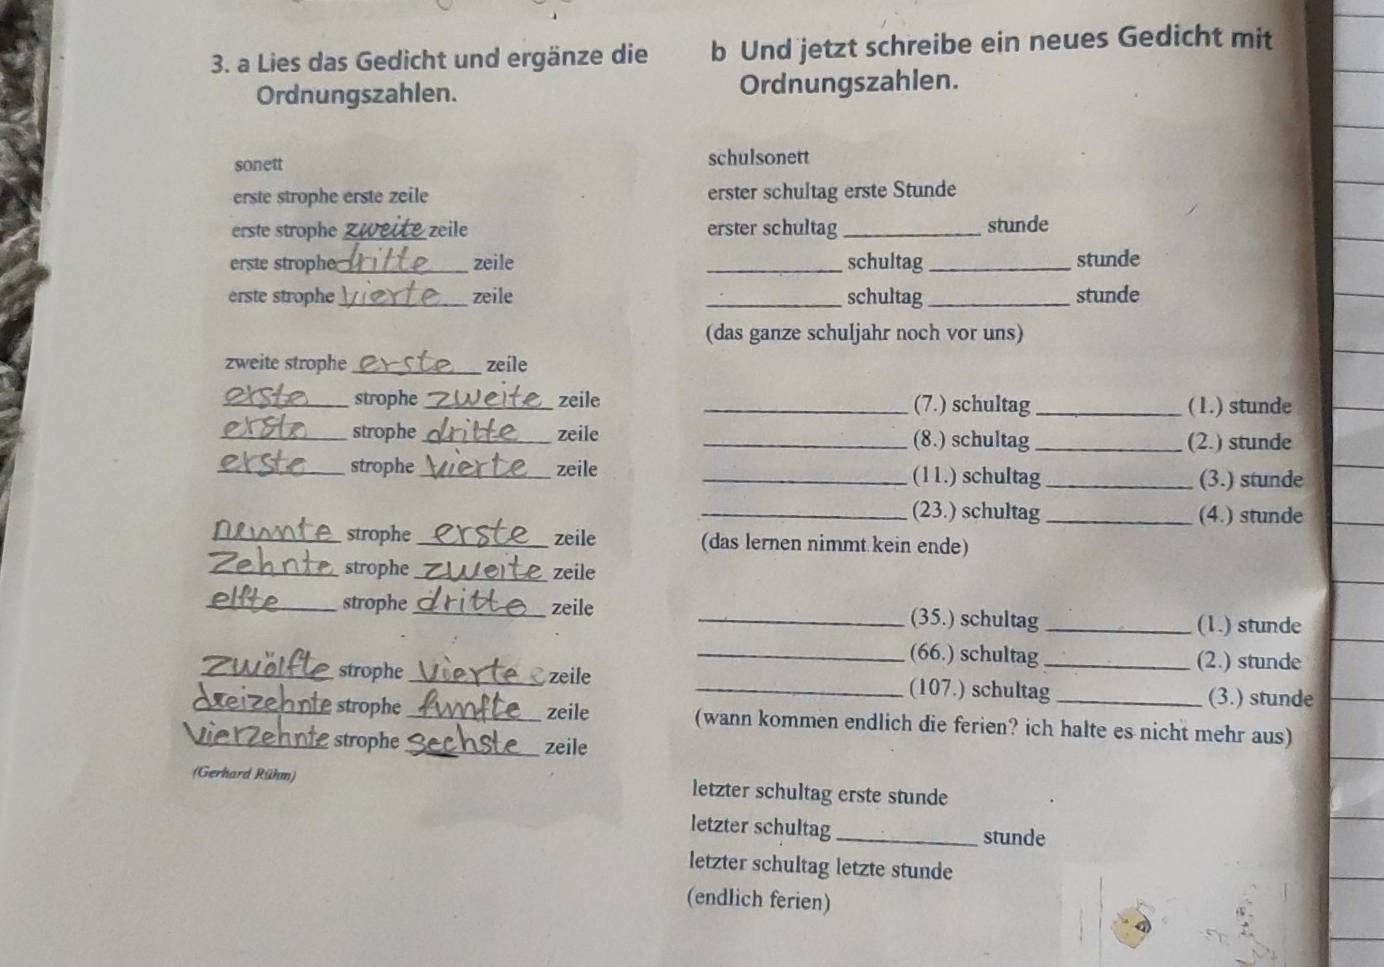 3. a Lies das Gedicht und ergänze die
Ordnungszahlen.
sonett
erste strophe erste zeile
erste strophe zweite zeile
erste strophe dritte zeile
erste strophe vierte zeile
zweite strophe erste zeile
erste strophe zweite zeile
erste strophe dritte zeile
erste strophe vierte zeile
neunte strophe erste zeile
Zehnte strophe zweite zeile
elfte strophe dritte zeile
zwölfte strophe vierte zeile
dreizehnte strophe funfte zeile
vierzehnte strophe sechste zeile
(Gerhard Rühm)
b Und jetzt schreibe ein neues Gedicht mit
Ordnungszahlen.
schulsonett
erster schultag erste Stunde
erster schultag ____________ stunde
____________ schultag ____________ stunde
____________ schultag ____________ stunde
(das ganze schuljahr noch vor uns)
____________ (7.) schultag ____________ (1.) stunde
____________ (8.) schultag ____________ (2.) stunde
____________ (11.) schultag ____________ (3.) stunde
____________ (23.) schultag ____________ (4.) stunde
(das lernen nimmt kein ende)
____________ (35.) schultag ____________ (1.) stunde
____________ (66.) schultag ____________ (2.) stunde
____________ (107.) schultag ____________ (3.) stunde
(wann kommen endlich die ferien? ich halte es nicht mehr aus)
letzter schultag erste stunde
letzter schultag ____________ stunde
letzter schultag letzte stunde
(endlich ferien)